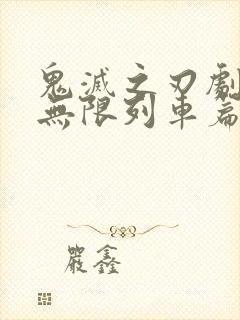 鬼滅之刃劇
無限列車篇
嚴鑫